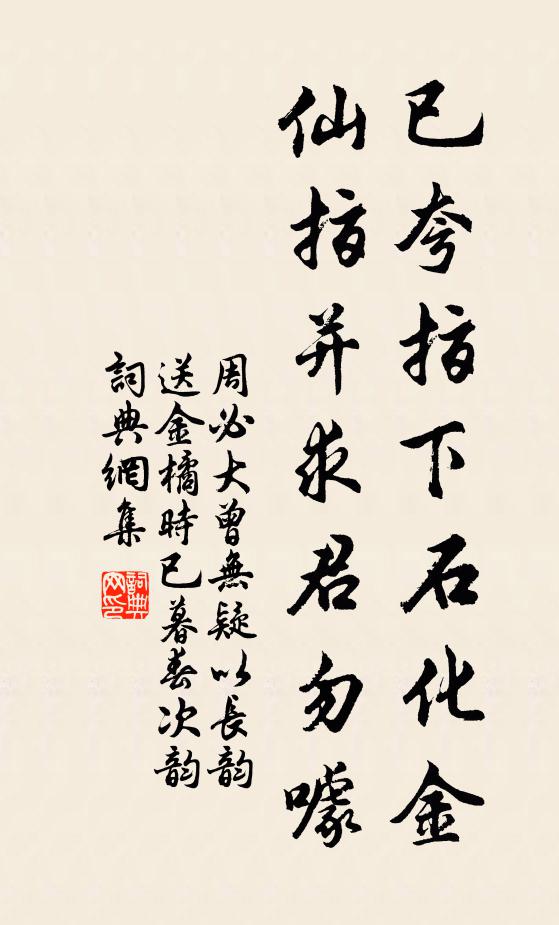 已夸指下石化金
仙指并求君勿噱
周必大曾無疑以長韵
送金橘時已暮春次韵
詞典網集
詞典网印